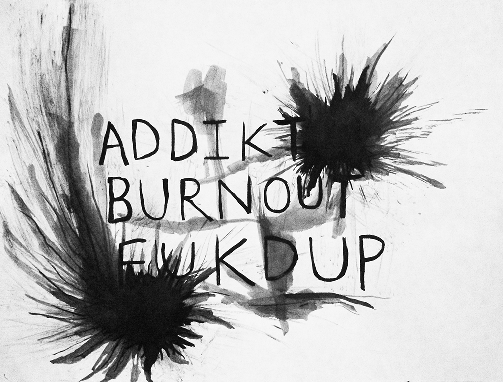 ADDIKT
BURNOUT
FUKDUP